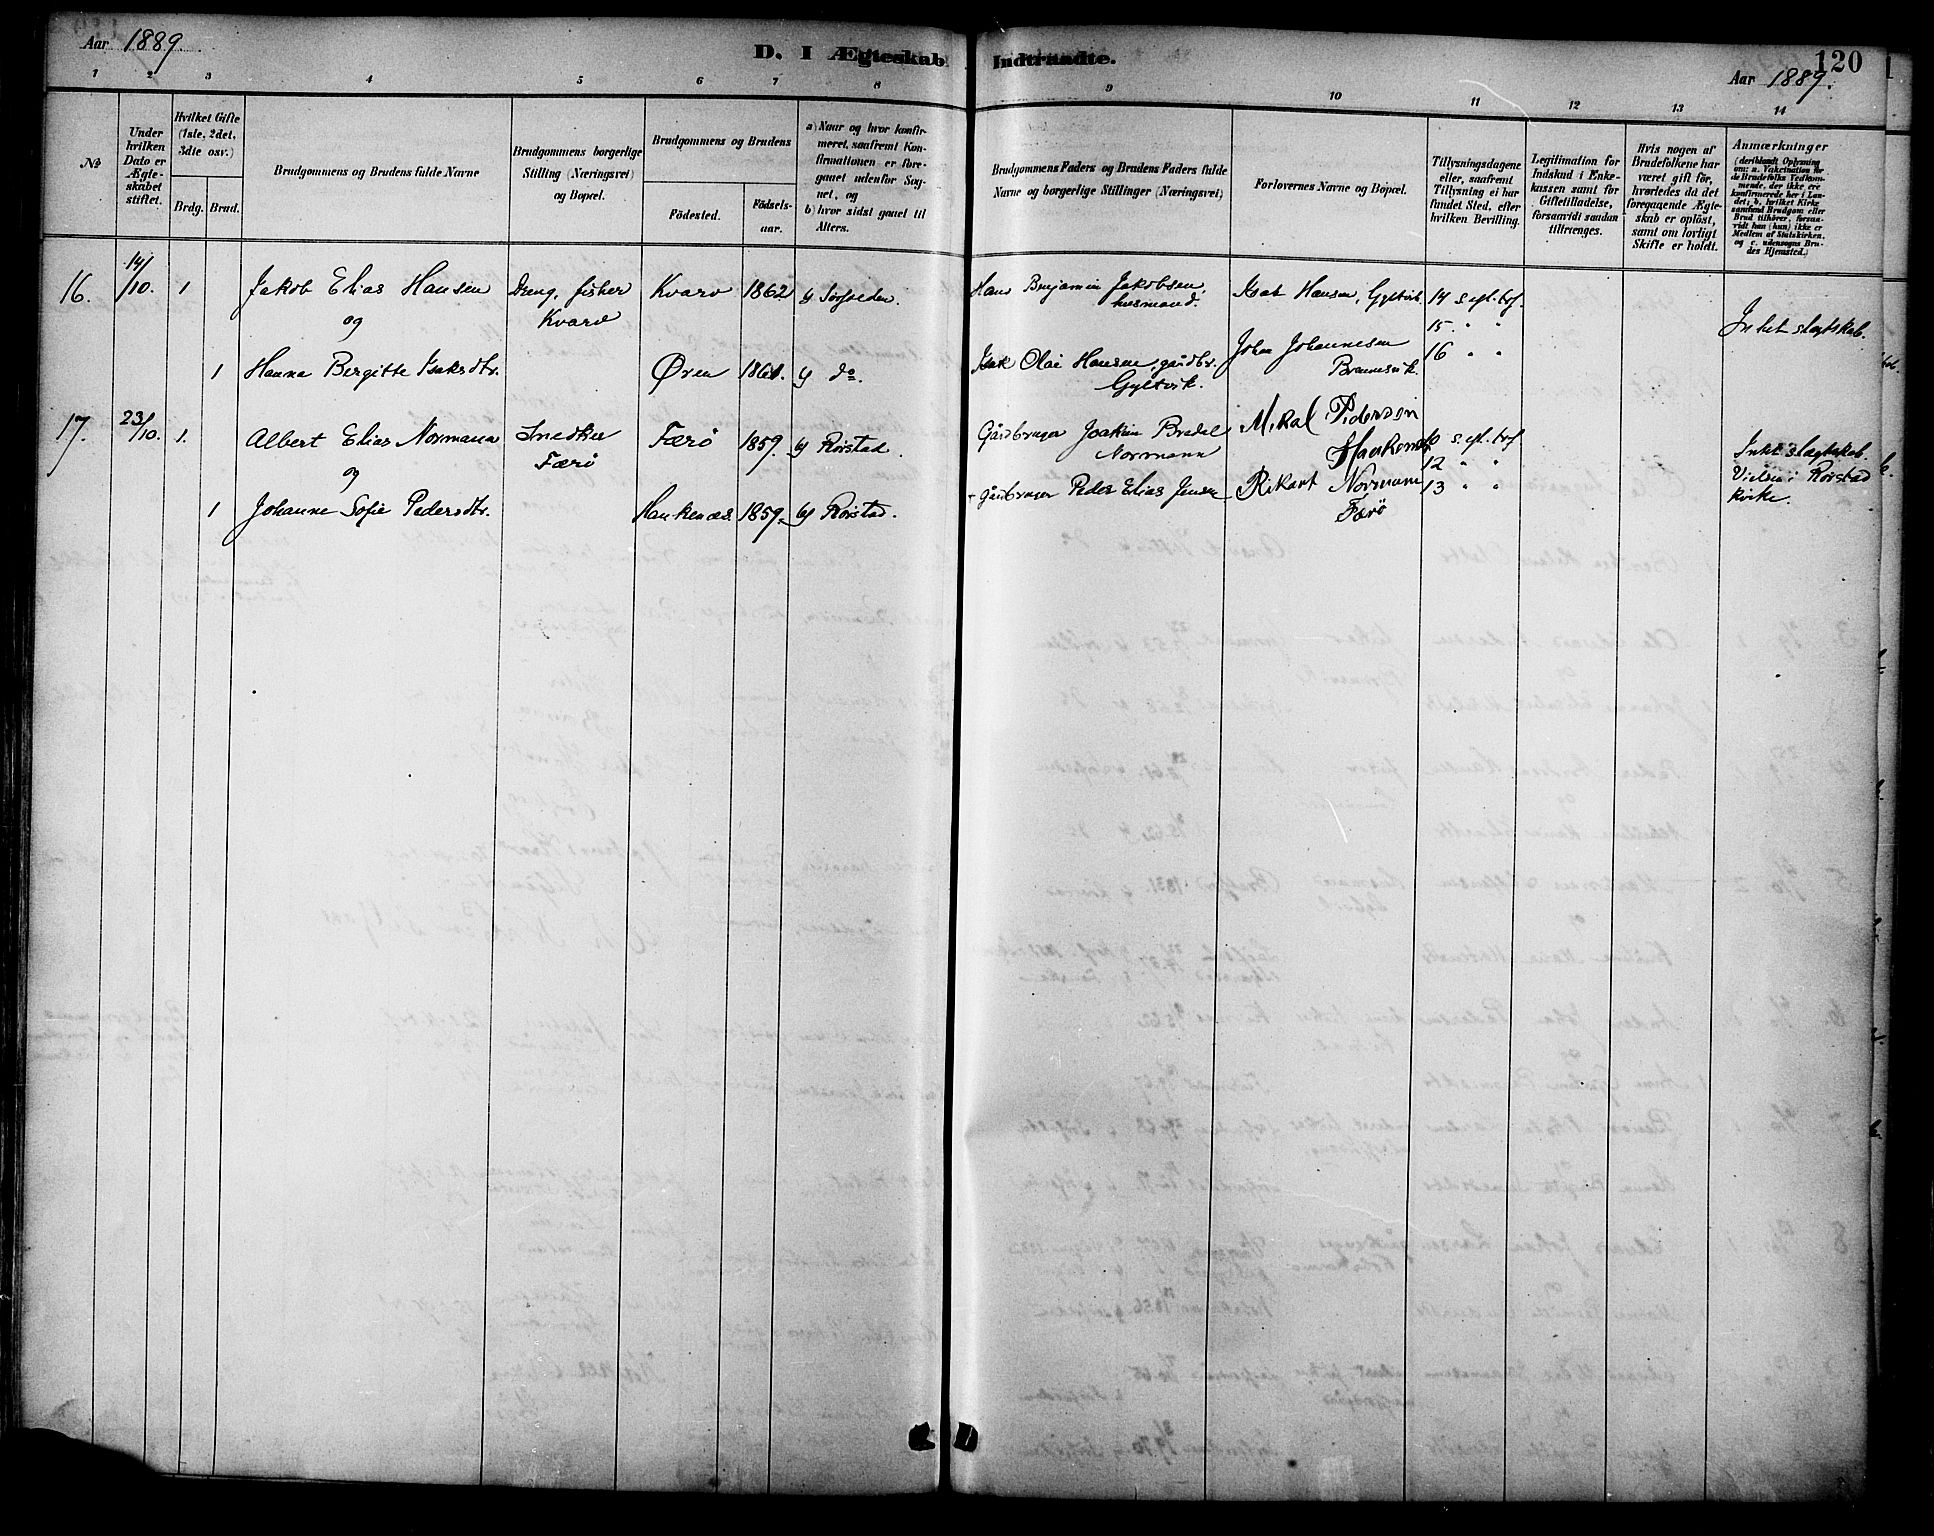 Aar 1889.
D. I Ægteskab Indtraadte.
120
Aar 1889.
1 2 3 4 5 6 7 8 9 10 11 12 13 14
№
Under hvilken Dato er Ægteskabet stiftet.
Hvilket Gifte (1ste, 2det, 3die osv.)
Brdg. Brud.
Brudgommens og Brudens fulde Navne
Brudgommens borgerlige Stilling (Næringsvei) og Bopæl.
Brudgommens og Brudens
Födested.
Födsels-aar.
a) Naar og hvor konfirmeret, saafremt Konfirmationen er foregaaet udenfor Sognet, og
b) hvor sidst gaaet til Alters.
Brudgommens Faders og Brudens Faders fulde Navne og borgerlige Stillinger (Næringsvei)
Forlovernes Navne og Bopæl.
Tillysningsdagene eller, saafremt Tillysning ei har fundet Sted, efter hvilken Bevilling.
Legitimation for Indskud i Enkekassen samt for Giftetilladelse, forsaavidt saadan tiltrænges.
Hvis nogen af Brudefolkene har været gift för, hvorledes da det foregaaende Ægteskab er oplöst, samt om lovligt Skifte er holdt.
Anmærkninger
(deriblandt Oplysning om: a. Vakcination for de Brudefolks Vedkommende, der ikke ere konfirmerede her i Landet; b. hvilket Kirkesamfund Brudgom eller Brud tilhörer, forsaavidt han (hun) ikke er Medlem af Statskirken, og c. udensogns Brudes Hjemsted.)
16. 14/10. 1 Jakob Elias Hansen Dreng, fisker Kvarv 1862 Sörfolden. Hans Benjamin Jakobsen, Hansen, Gyltvik 14 s. eft. trf.
og Kvarv husmand. 15. " " Intet slægtskab.
1 Hanna Bergitte Isaksdtr. Øren 1861. do. Isak Olai Hansen, gårdbr. Johan Johannesen 16 " "
Gyltvik.
17. 23/10. 1. Albert Elias Normann Snedker Færö 1859. Rörstad. Gårdbruger Joakim Bredal Mikal Pedersen
og Færö Normann 10 s. eft. trf. Intet slægtskab.
12 " " Vielse i Rörstad
1 Johanne Sofie Pedersdtr. Haukenæs. 1859. Rörstad. gårdbruger Peder Elias Jensen Rikart Normann 13 " " Kirke.
Færö